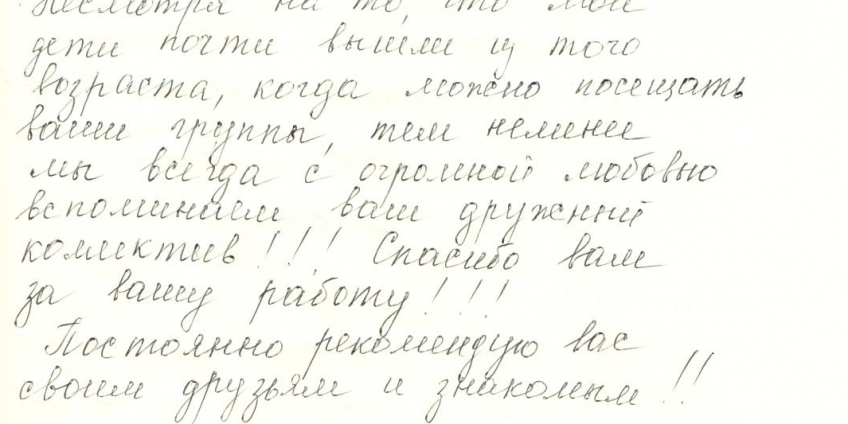 Несмотря на то, что мои
дети почти вышли из того
возраста, когда можно посещать
ваши группы, тем неменее
мы всегда с огромной любовью
вспоминаем ваш дружный
коллектив!!! Спасибо вам
за вашу работу!!!
Постоянно рекомендую вас
своим друзьям и знакомым!!